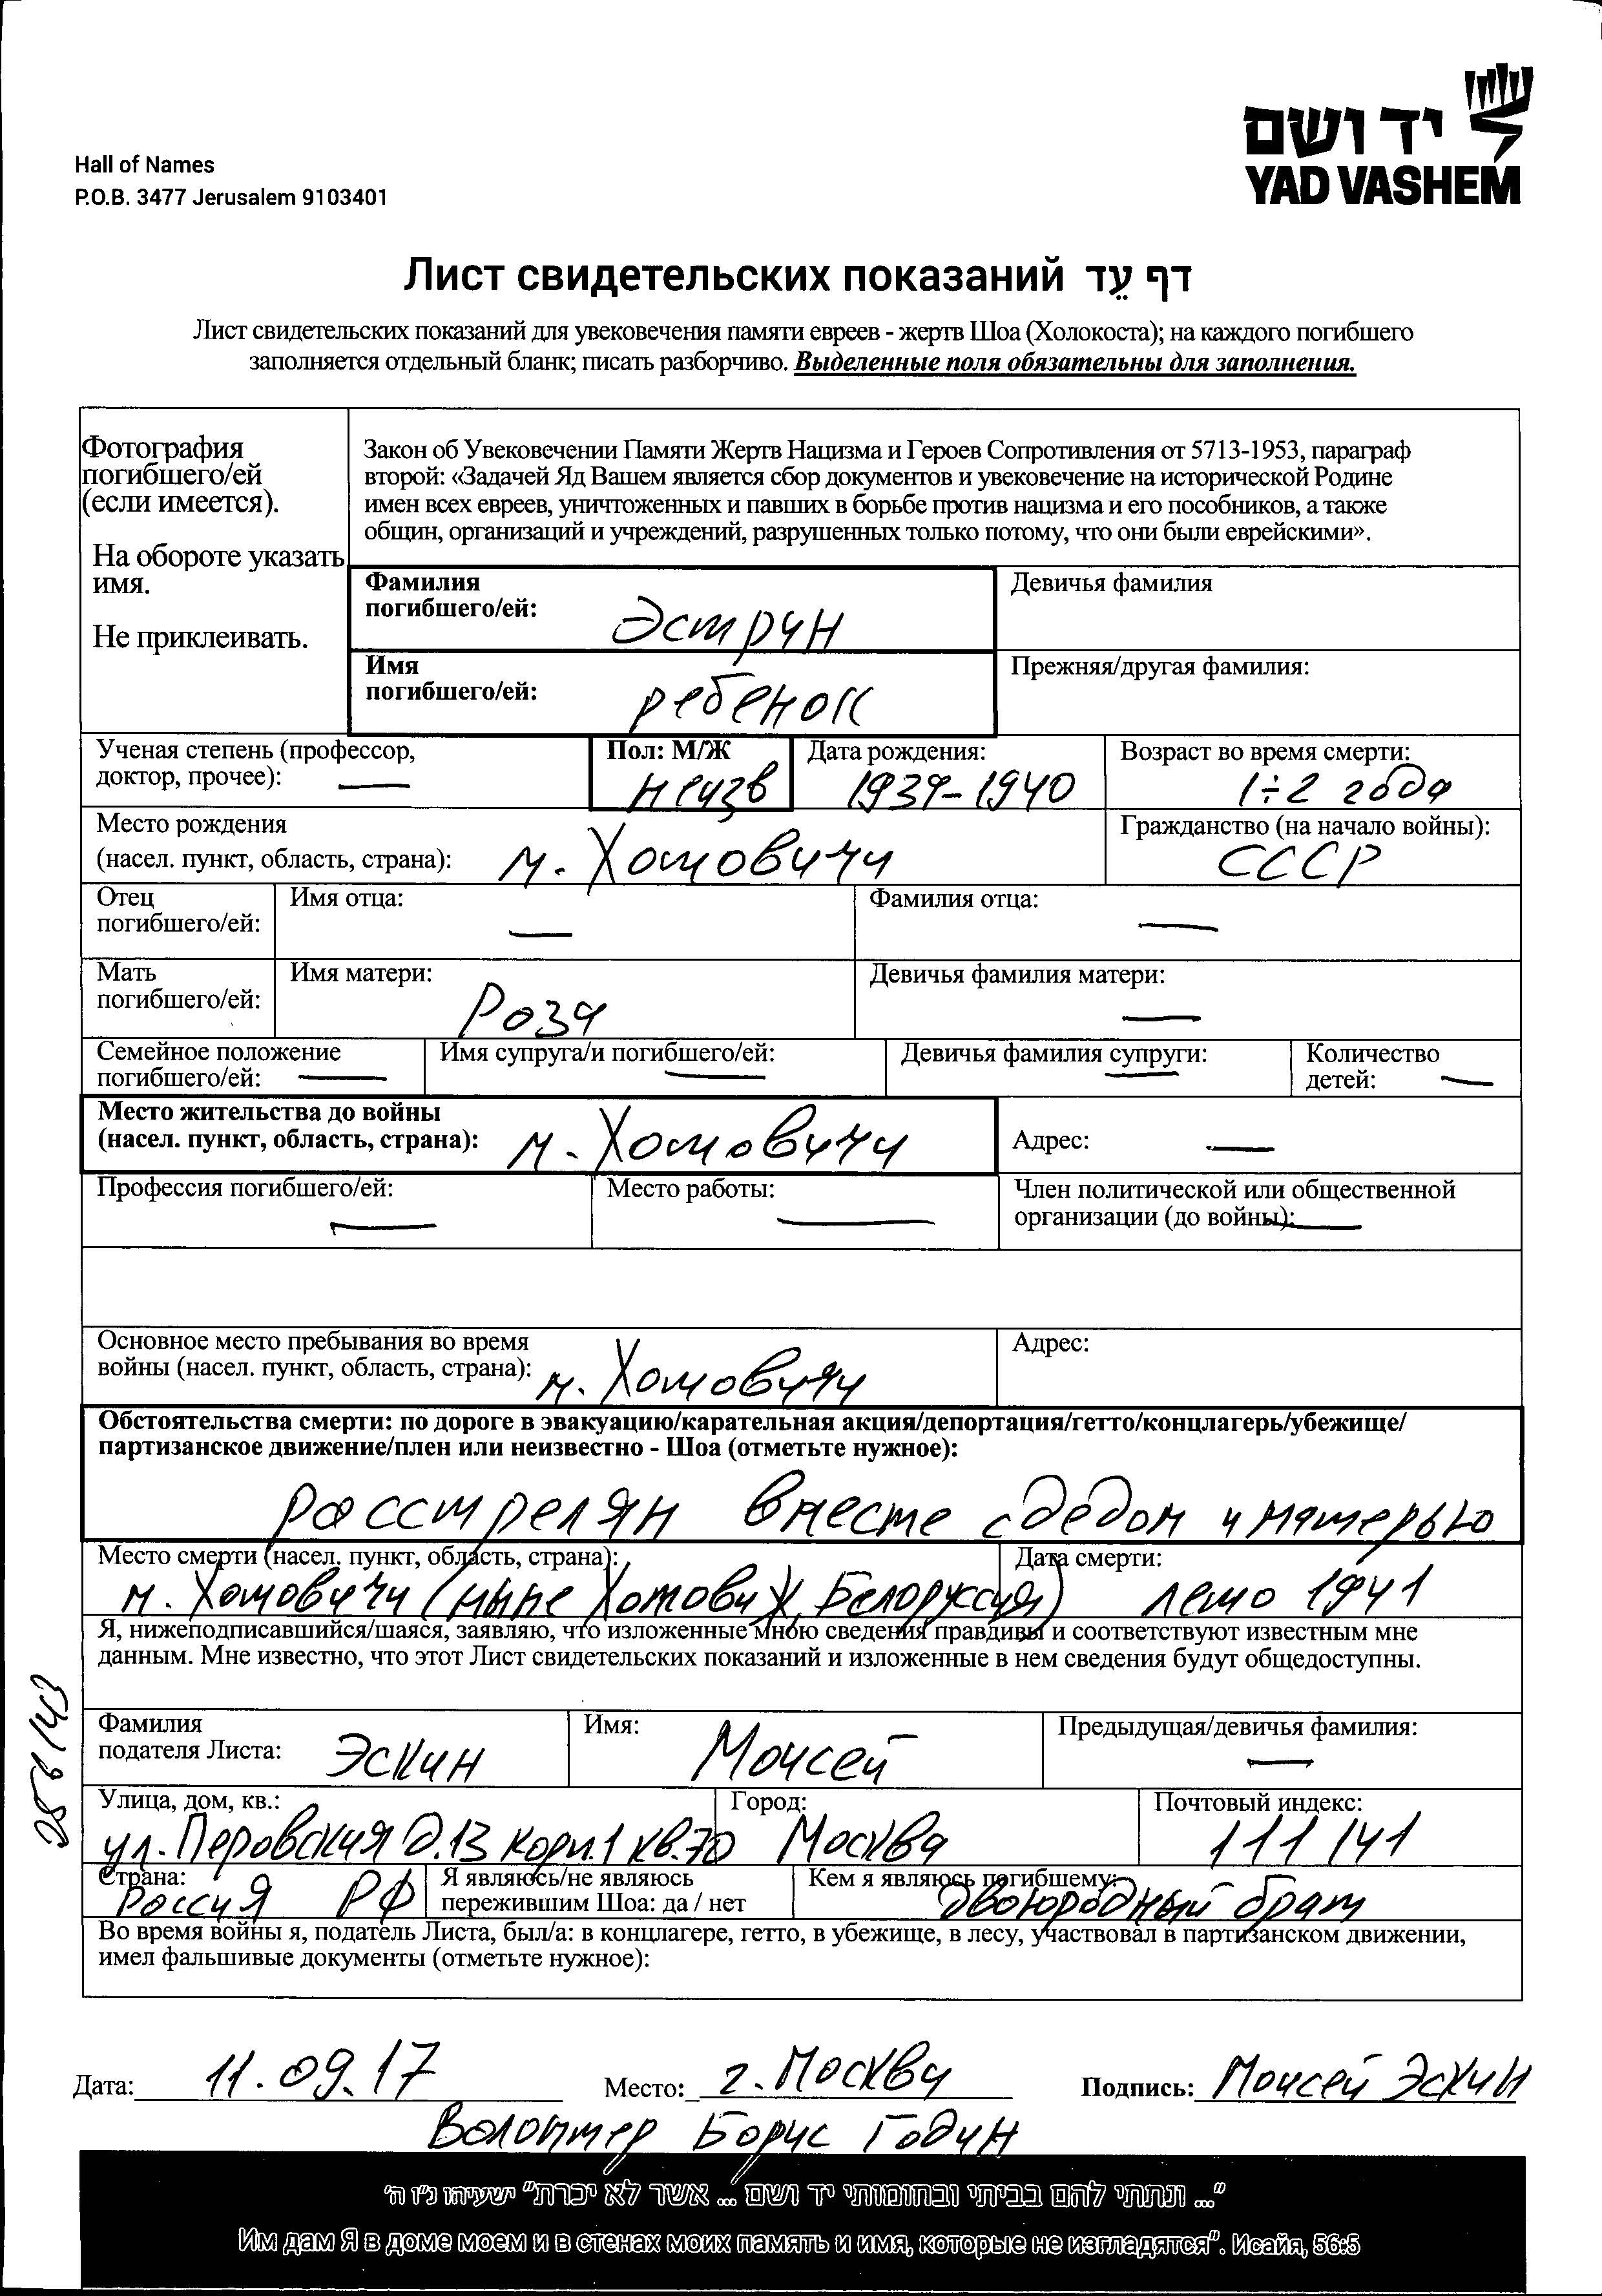 יד ושם
YAD VASHEM
Hall of Names
P.O.B. 3477 Jerusalem 9103401
Лист свидетельских показаний דף עֵד
Лист свидетельских показаний для увековечения памяти евреев - жертв Шоа (Холокоста); на каждого погибшего
заполняется отдельный бланк; писать разборчиво. Выделенные поля обязательны для заполнения.
Фотография
погибшего/ей
(если имеется).
На обороте указать
имя.
Не приклеивать.
Закон об Увековечении Памяти Жертв Нацизма и Героев Сопротивления от 5713-1953, параграф
второй: «Задачей Яд Вашем является сбор документов и увековечение на исторической Родине
имен всех евреев, уничтоженных и павших в борьбе против нацизма и его пособников, а также
общин, организаций и учреждений, разрушенных только потому, что они были еврейскими».
Фамилия
погибшего/ей: Эстрин
Девичья фамилия
Имя
погибшего/ей: ребенок
Прежняя/другая фамилия:
Ученая степень (профессор,
доктор, прочее): —
Пол: М/Ж
неизв
Дата рождения:
1939-1940
Возраст во время смерти:
1÷2 года
Место рождения
(насел. пункт, область, страна): м. Хотовичи
Гражданство (на начало войны):
СССР
Отец
погибшего/ей:
Имя отца:
—
Фамилия отца:
—
Мать
погибшего/ей:
Имя матери:
Роза
Девичья фамилия матери:
—
Семейное положение
погибшего/ей: —
Имя супруга/и погибшего/ей:
—
Девичья фамилия супруги:
—
Количество
детей: —
Место жительства до войны
(насел. пункт, область, страна): м. Хотовичи
Адрес: —
Профессия погибшего/ей:
—
Место работы:
—
Член политической или общественной
организации (до войны): —
Основное место пребывания во время
войны (насел. пункт, область, страна): м. Хотовичи
Адрес:
Обстоятельства смерти: по дороге в эвакуацию/карательная акция/депортация/гетто/концлагерь/убежище/
партизанское движение/плен или неизвестно - Шоа (отметьте нужное):
расстрелян вместе с дедом и матерью
Место смерти (насел. пункт, область, страна):
м. Хотовичи (ныне Хотовиж, Белоруссия)
Дата смерти:
лето 1941
Я, нижеподписавшийся/шаяся, заявляю, что изложенные мною сведения правдивы и соответствуют известным мне
данным. Мне известно, что этот Лист свидетельских показаний и изложенные в нем сведения будут общедоступны.
Фамилия
подателя Листа: Эскин
Имя:
Моисей
Предыдущая/девичья фамилия:
—
Улица, дом, кв.:
ул. Перовская д.13 корп.1 кв.70
Город:
Москва
Почтовый индекс:
111 141
Страна:
Россия РФ
Я являюсь/не являюсь
пережившим Шоа: да / нет
Кем я являюсь погибшему:
двоюродный брат
Во время войны я, податель Листа, был/а: в концлагере, гетто, в убежище, в лесу, участвовал в партизанском движении,
имел фальшивые документы (отметьте нужное):
Дата: 11.09.17 Место: г. Москва Подпись: Моисей Эскин
Волонтер Борис Годин
"... ונתתי להם בביתי ובחומותי יד ושם ... אשר לא יכרת" ישעיהו נ"ו ה'
Им дам Я в доме моем и в стенах моих память и имя, которые не изгладятся". Исайя, 56:5